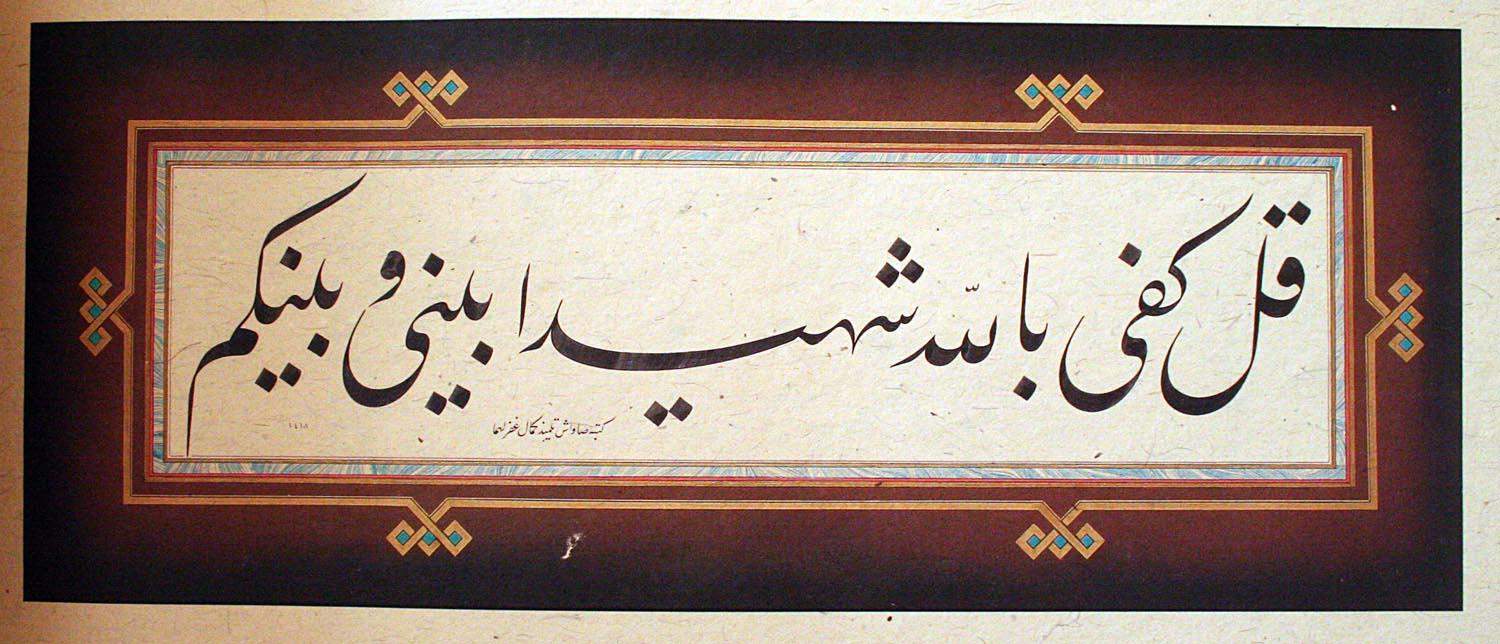 قل كفى بالله شهيدا بيني وبينكم
كتبه صاواش تلميذ كمال غفر لهما
١٤١٨